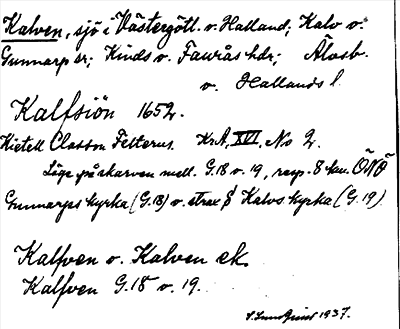 Kalven, sjö i Västergötl. v. Halland; Kalv v.
Gunnarp sr; Kinds v. Faurås hdr; Älvsb.
v. Hallands l.
Kalfsiön 1652.
Kietell Classon Felterus. KrA, XVI, No 2.
Läge på skarven mell. G.18 v. 19, resp. 8 km. ÖNÖ
Gunnarps kyrka (G.18) v. strax S Kalvs kyrka (G.19)
Kalfven v. Kalven ek.
Kalfven G.18 v. 19.
S. Lundquist 1937.